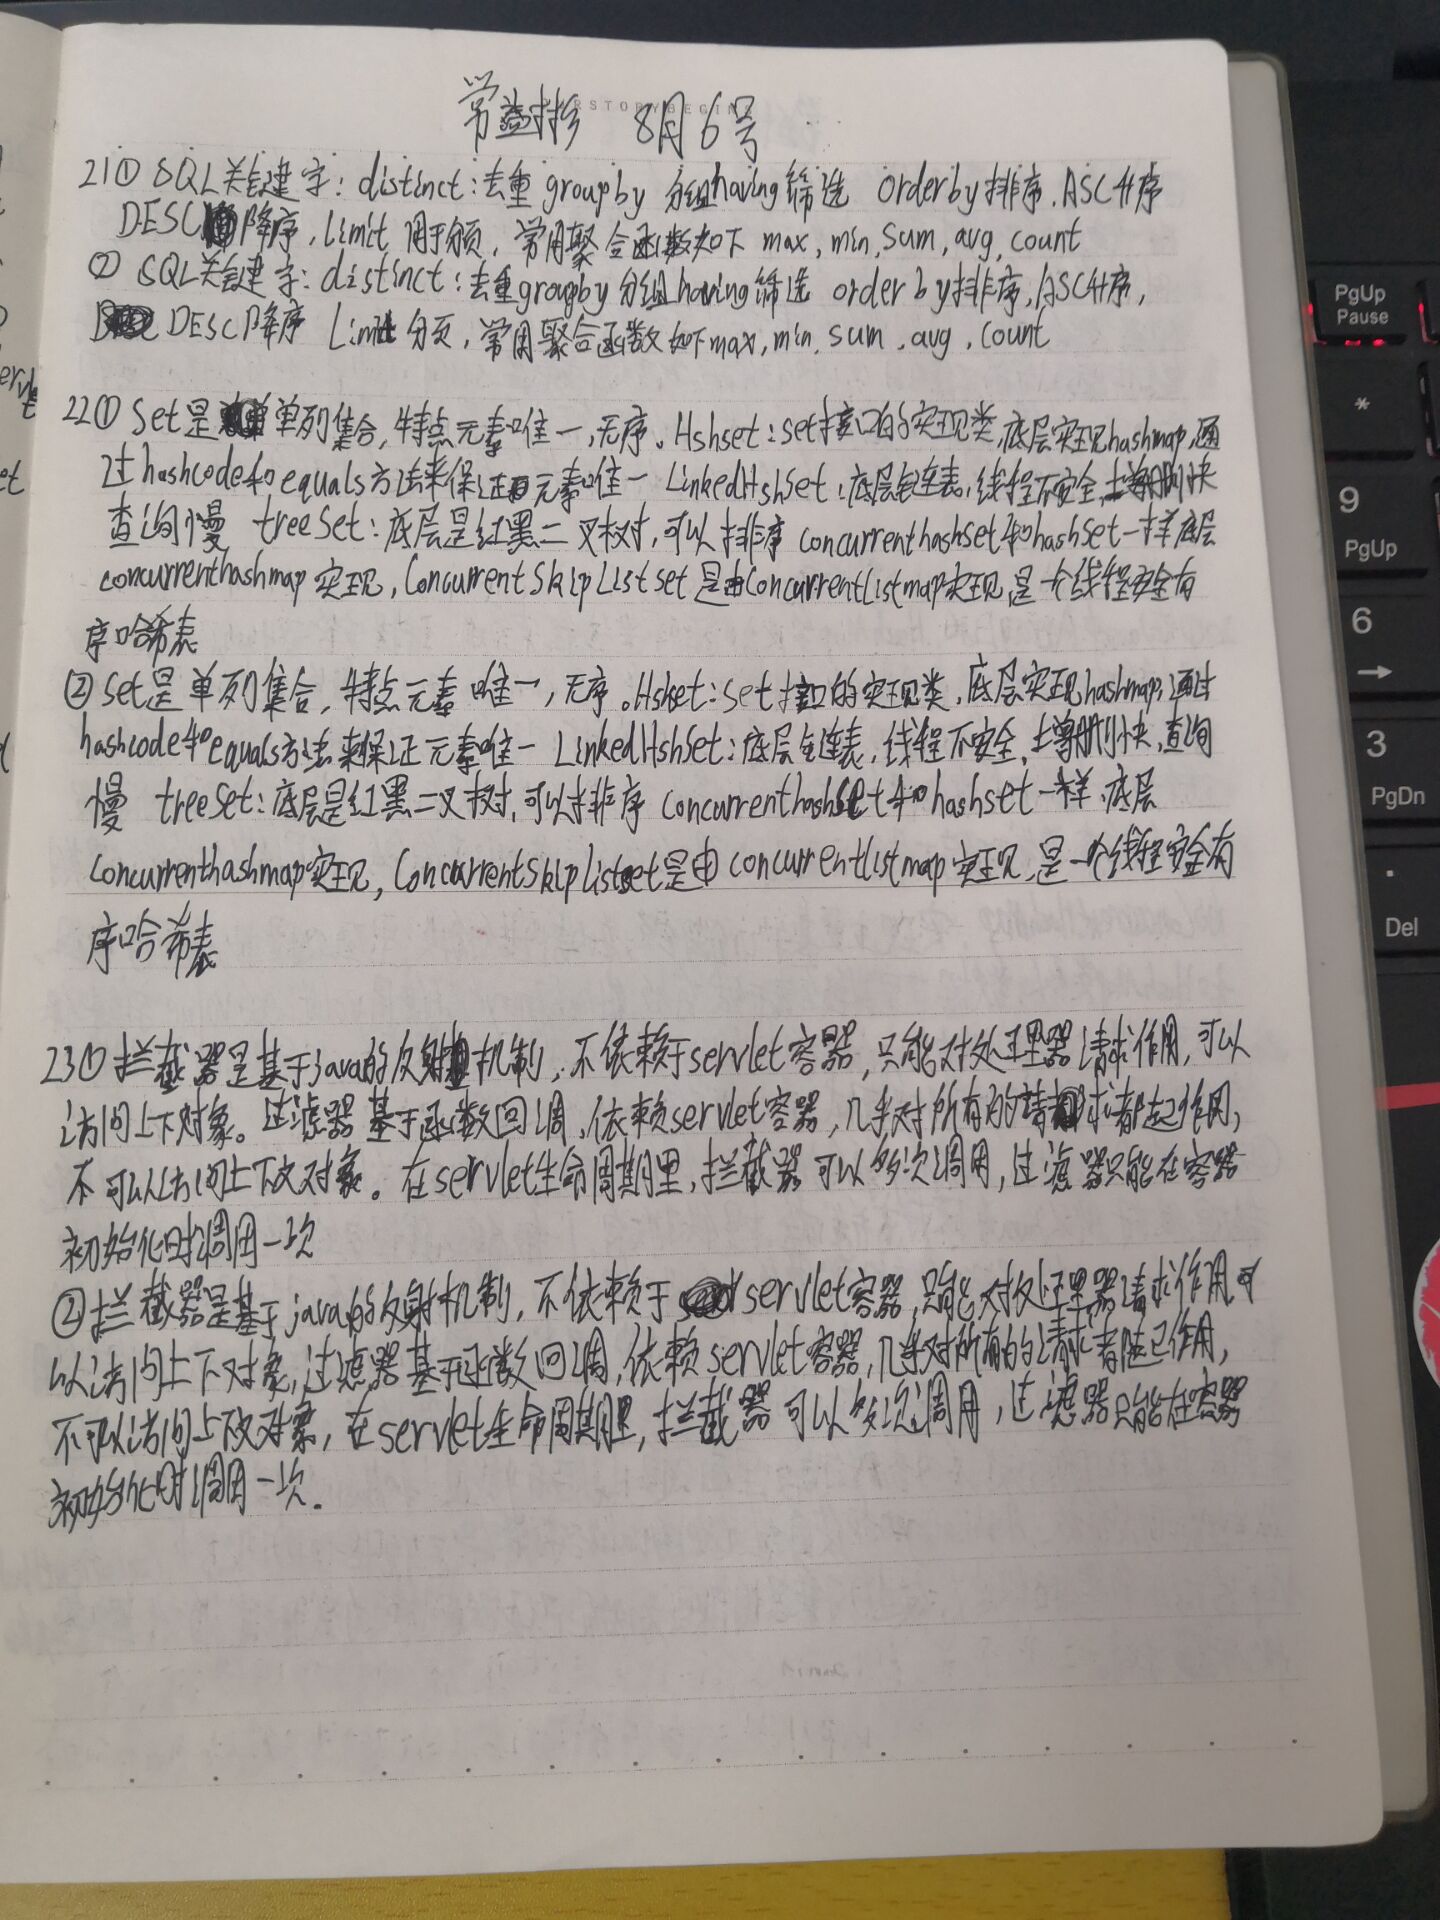 常益扬 8月6号
21① SQL关键字: distinct:去重 groupby 分组having筛选 orderby排序.ASC升序
DESC降序,Limit 用于分页,常用聚合函数如下 max,min,sum,avg,count
② SQL关键字: distinct:去重groupby分组having筛选 order by排序,ASC升序,
DESC降序 Limit 分页,常用聚合函数如下max,min,sum,avg,count
22① Set是单列集合,特点元素唯一,无序。Hshset:set接口的实现类,底层实现hashmap,通
过hashcode和equals方法来保证元素唯一 LinkedHshSet:底层链表,线程不安全,增删快
查询慢 treeSet:底层是红黑二叉树,可以排序 concurrenthashset和hashSet一样底层
concurrenthashmap实现,ConcurrentSkipListset是由ConcurrentListmap实现,是一个线程安全有
序哈希表
② set是单列集合,特点元素唯一,无序。Hshset:set接口的实现类,底层实现hashmap,通过
hashcode和equals方法来保证元素唯一 LinkedHshSet:底层链表,线程不安全,增删快,查询
慢 treeSet:底层是红黑二叉树,可以排序 concurrenthashset和hashset一样,底层
concurrenthashmap实现,ConcurrentSkipListset是由concurrentlistmap实现,是一个线程安全有
序哈希表
23① 拦截器是基于java的反射机制,不依赖于servlet容器,只能对处理器请求作用,可以
访问上下对象。过滤器基于函数回调,依赖servlet容器,几乎对所有的请求都起作用,
不可以访问上下文对象。在servlet生命周期里,拦截器可以多次调用,过滤器只能在容器
初始化时调用一次
② 拦截器是基于java的反射机制,不依赖于servlet容器,只能对处理器请求作用,可
以访问上下对象,过滤器基于函数回调,依赖servlet容器,几乎对所有的请求都起作用,
不可以访问上下文对象,在servlet生命周期里,拦截器可以多次调用,过滤器只能在容器
初始化时调用一次.
PgUp
Pause
*
9
PgUp
6
→
3
PgDn
.
Del